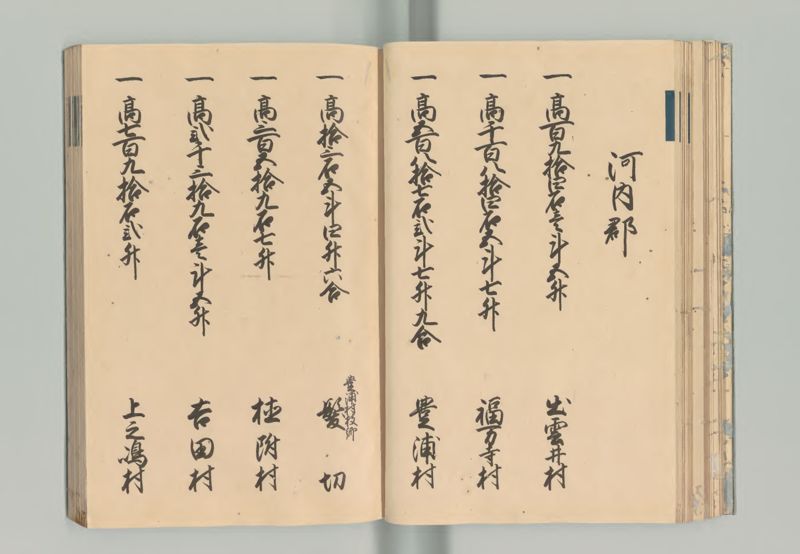 河内郡
一 高百九拾四石壱斗五升 出雲井村
一 高千百八拾四石五斗七升 福万寺村
一 高五百八拾七石弐斗七升九合 豊浦村
一 高拾三石五斗四升六合 豊浦村枝郷 髪切
一 高三百五拾九石七升 植附村
一 高弐千三拾九石壱斗五升 吉田村
一 高七百九拾石弐升 上之嶋村